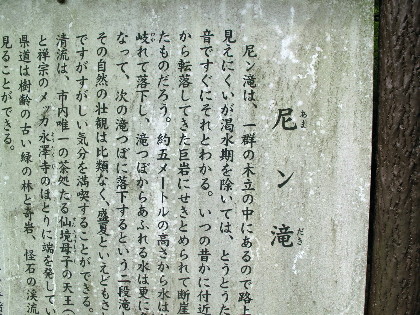 尼ン滝
あま
だき
尼ン滝は、一群の木立の中にあるので路上
見えにくいが渇水期を除いては、とうとうた
音ですぐにそれとわかる。いつの昔かに付近
から転落してきた巨岩にせきとめられて断崖
たものだろう。約五メートルの高さから水は
岐れて落下し、滝つぼからあふれる水は更に
なって、次の滝つぼに落下するという二段滝
その自然の壮観は比類なく、盛夏といえどもさ
ですがすがしい気分を満喫することができる。
清流は、市内唯一の茶処たる仙境母子の天王(
と禅宗のメッカ永澤寺のほとりに端を発してい
県道は樹齢の古い緑の林と奇岩、怪石の渓流
見ることができる。